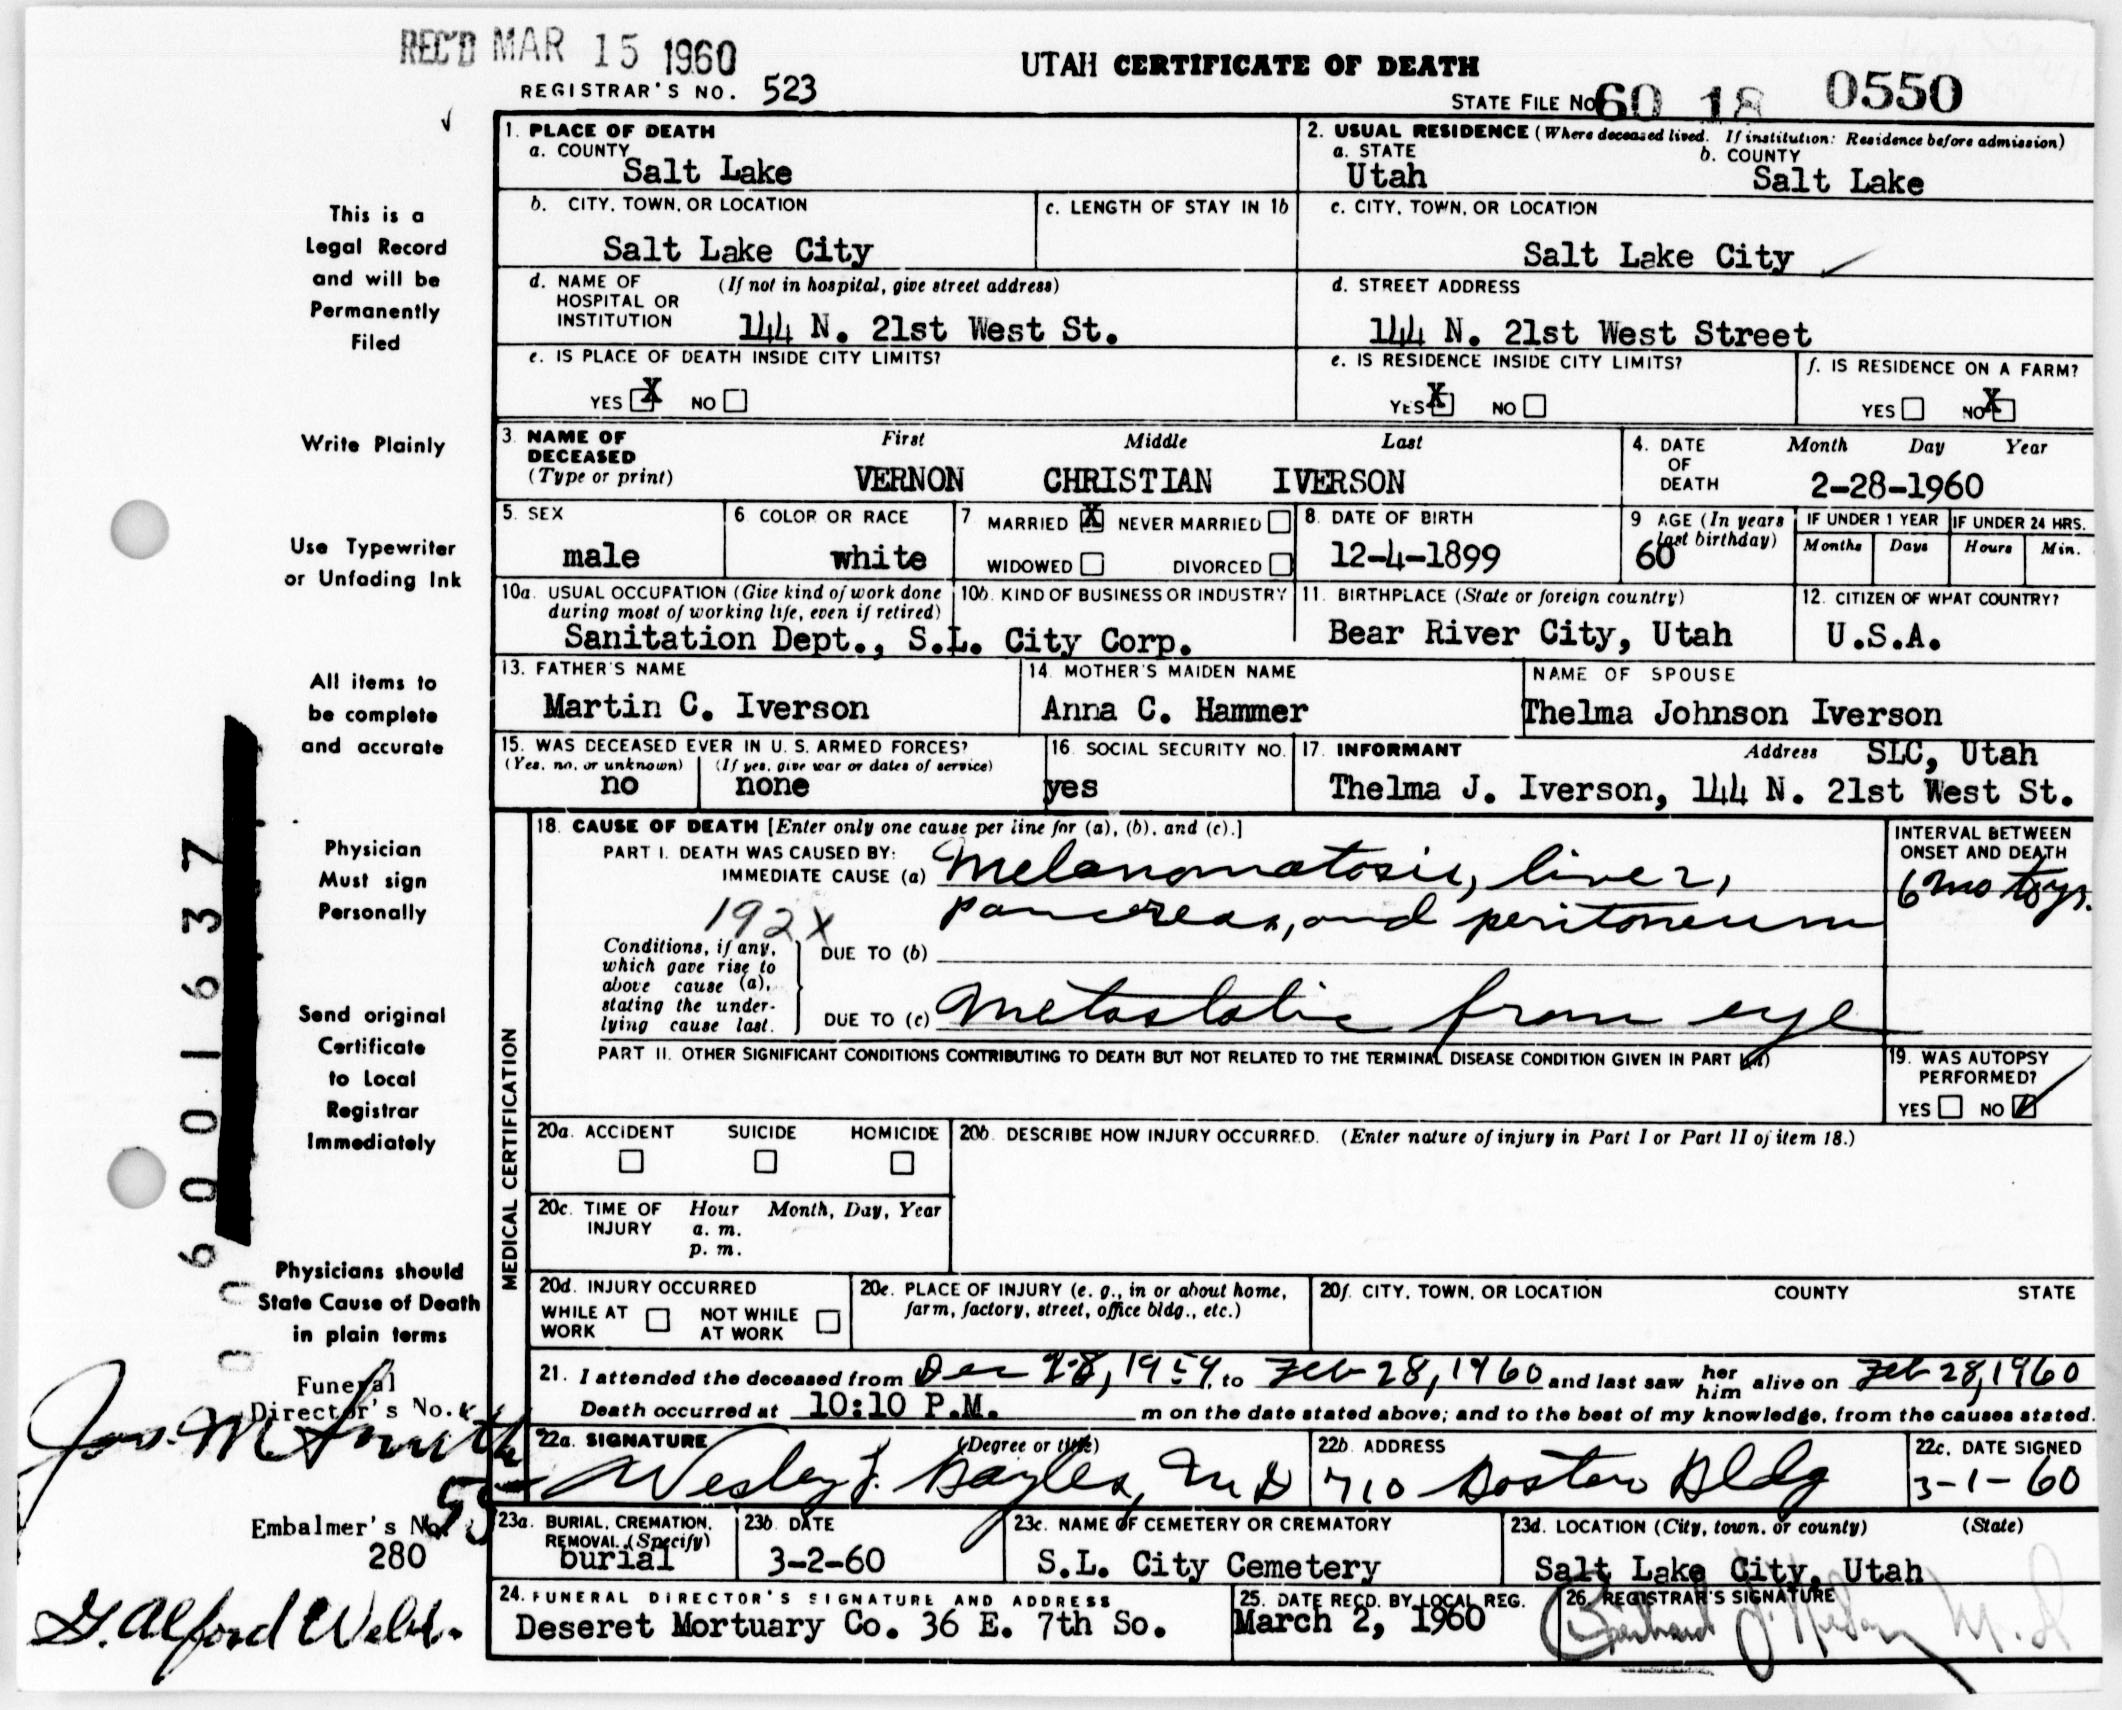 REC'D MAR 15 1960
UTAH CERTIFICATE OF DEATH
REGISTRAR'S NO. 523
STATE FILE No 60 18 0550
1. PLACE OF DEATH
a. COUNTY
Salt Lake
2. USUAL RESIDENCE (Where deceased lived. If institution: Residence before admission)
a. STATE
Utah
b. COUNTY
Salt Lake
b. CITY, TOWN, OR LOCATION
Salt Lake City
c. LENGTH OF STAY IN 1b
c. CITY, TOWN, OR LOCATION
Salt Lake City
d. NAME OF HOSPITAL OR INSTITUTION
(If not in hospital, give street address)
144 N. 21st West St.
d. STREET ADDRESS
144 N. 21st West Street
e. IS PLACE OF DEATH INSIDE CITY LIMITS?
YES X NO
e. IS RESIDENCE INSIDE CITY LIMITS?
YES X NO
f. IS RESIDENCE ON A FARM?
YES NO X
3. NAME OF DECEASED
(Type or print)
First Middle Last
VERNON CHRISTIAN IVERSON
4. DATE OF DEATH
Month Day Year
2-28-1960
5. SEX
male
6 COLOR OR RACE
white
7 MARRIED X NEVER MARRIED
WIDOWED DIVORCED
8. DATE OF BIRTH
12-4-1899
9 AGE (In years last birthday)
60
IF UNDER 1 YEAR
Months Days
IF UNDER 24 HRS.
Hours Min.
10a. USUAL OCCUPATION (Give kind of work done during most of working life, even if retired)
10b. KIND OF BUSINESS OR INDUSTRY
Sanitation Dept., S.L. City Corp.
11. BIRTHPLACE (State or foreign country)
Bear River City, Utah
12. CITIZEN OF WHAT COUNTRY?
U.S.A.
13. FATHER'S NAME
Martin C. Iverson
14. MOTHER'S MAIDEN NAME
Anna C. Hammer
NAME OF SPOUSE
Thelma Johnson Iverson
15. WAS DECEASED EVER IN U. S. ARMED FORCES?
(Yes, no, or unknown) (If yes, give war or dates of service)
no none
16. SOCIAL SECURITY NO.
yes
17. INFORMANT Address SLC, Utah
Thelma J. Iverson, 144 N. 21st West St.
MEDICAL CERTIFICATION
18. CAUSE OF DEATH [Enter only one cause per line for (a), (b), and (c).]
PART I. DEATH WAS CAUSED BY:
IMMEDIATE CAUSE (a) Melanomatosis, liver,
pancreas, and peritoneum
192X
Conditions, if any, which gave rise to above cause (a), stating the underlying cause last.
DUE TO (b)
DUE TO (c) Metastatic from eye
INTERVAL BETWEEN ONSET AND DEATH
6 mo to yrs.
PART II. OTHER SIGNIFICANT CONDITIONS CONTRIBUTING TO DEATH BUT NOT RELATED TO THE TERMINAL DISEASE CONDITION GIVEN IN PART I(a)
19. WAS AUTOPSY PERFORMED?
YES NO
20a. ACCIDENT SUICIDE HOMICIDE
20b. DESCRIBE HOW INJURY OCCURRED. (Enter nature of injury in Part I or Part II of item 18.)
20c. TIME OF INJURY
Hour Month, Day, Year
a. m.
p. m.
20d. INJURY OCCURRED
WHILE AT WORK NOT WHILE AT WORK
20e. PLACE OF INJURY (e. g., in or about home, farm, factory, street, office bldg., etc.)
20f. CITY, TOWN, OR LOCATION COUNTY STATE
21. I attended the deceased from Dec 28, 1959, to Feb 28, 1960 and last saw her him alive on Feb 28, 1960
Death occurred at 10:10 P.M. m on the date stated above; and to the best of my knowledge, from the causes stated.
22a. SIGNATURE (Degree or title)
Wesley J. Bayles, M D
22b. ADDRESS
710 Boston Bldg
22c. DATE SIGNED
3-1-60
23a. BURIAL, CREMATION, REMOVAL (Specify)
burial
23b. DATE
3-2-60
23c. NAME OF CEMETERY OR CREMATORY
S.L. City Cemetery
23d. LOCATION (City, town, or county) (State)
Salt Lake City, Utah
24. FUNERAL DIRECTOR'S SIGNATURE AND ADDRESS
Deseret Mortuary Co. 36 E. 7th So.
25. DATE RECD. BY LOCAL REG.
March 2, 1960
26. REGISTRAR'S SIGNATURE
This is a
Legal Record
and will be
Permanently
Filed
Write Plainly
Use Typewriter
or Unfading Ink
All items to
be complete
and accurate
Physician
Must sign
Personally
Send original
Certificate
to Local
Registrar
Immediately
Physicians should
State Cause of Death
in plain terms
Funeral
Director's No.
Jos. M Smith
Embalmer's No.
280
G. Alford Webb.
0 0 6 0 0 1 6 3 7